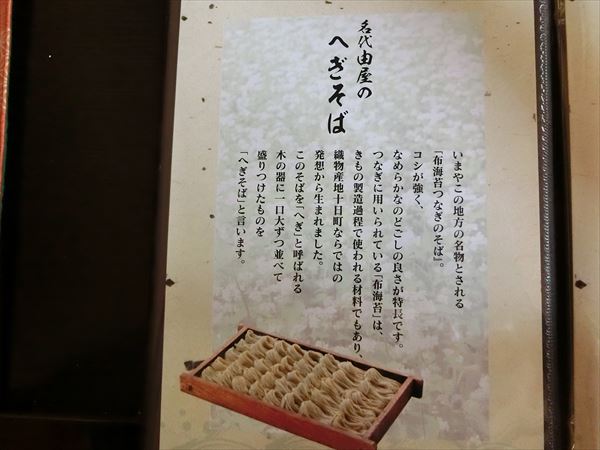 名代由屋の
へぎそば
いまやこの地方の名物とされる
「布海苔つなぎのそば」。
コシが強く、
なめらかなのどごしの良さが特長です。
つなぎに用いられている「布海苔」は、
きもの製造過程で使われる材料でもあり、
織物産地十日町ならではの
発想から生まれました。
このそばを「へぎ」と呼ばれる
木の器に一口大ずつ並べて
盛りつけたものを
「へぎそば」と言います。